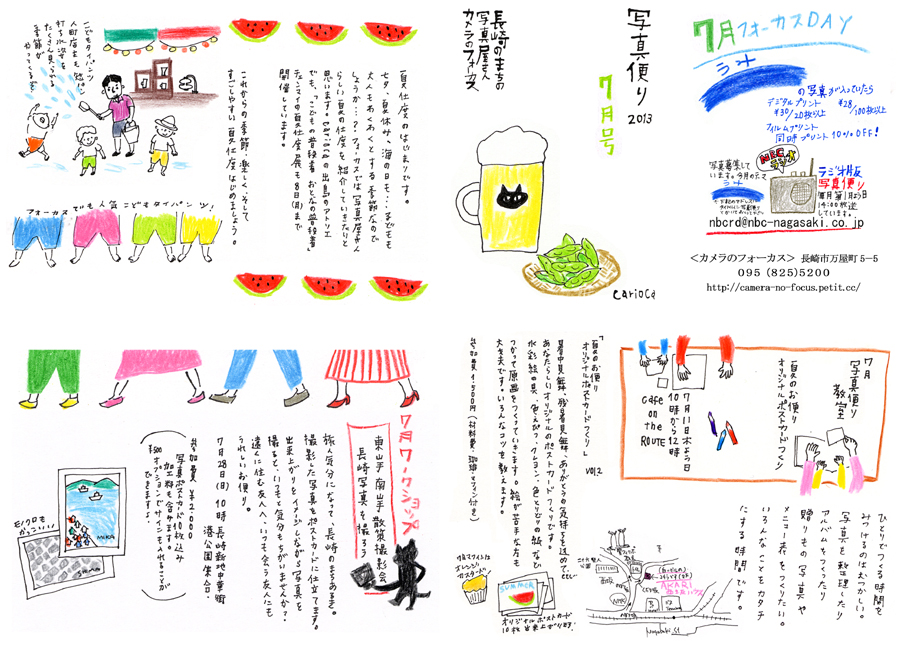 こどもタイパンツ
季節が
やってくるぞ
フォーカスでも人気こどもタイパンツ!
夏仕度のはじまりです。
七夕、夏休み、海の日も…こどもも
大人もわくわくする季節なので
しょうか…?フォーカスでは写真屋さん
らしい夏の仕度を紹介していきたいと
思います。cariocaの出島のアトリエ
でも、"こどもの普段着 おとなの普段着"
開催しています。
これからの季節、楽しく、そして
すごしやすい夏仕度はじめましょう。
写真便り
7月号
2013
長崎のまちの
写真屋さん
カメラのフォーカス
carioca
7月フォーカスDAY
の写真が入っていたら
デジタルプリント ¥28/100枚以上
¥30/20枚以上
フィルムプリント
同時プリント10%OFF!
写真募集して
います。今月のテーマ
NBCラジオ
ラジオ版
写真便り
毎月第1月よう日
14:00放送
しています。
nbcrd@nbc-nagasaki.co.jp
<カメラのフォーカス> 長崎市万屋町5-5
095 (825)5200
http://camera-no-focus.petit.cc/
7月ワークショップ
東山手・南山手 散策撮影会
長崎写真を撮ろう
旅人気分になって、長崎のまちあるき。
撮影した写真をポストカードに仕立てます。
出来上がりをイメージしながら写真を
撮ると、いつもと気分もちがいませんか?
遠くに住む友人へ、いつも会う友人にも
うれしいお便り。
7月28日(日) 10時 長崎新地中華街
湊公園集合。
参加費 ¥2,000
写真ポストカード10枚込み
加工料も含みます。
¥500オプションでサインも入れることが
できますよ。
モノクロも
かっこいい!
MIKA
7月
写真便り
教室
夏のお便り
オリジナルポストカードづくり
7月11日木よう日
10時から12時
cafe
on the
ROUTE
「夏のお便り
オリジナルポストカードづくり」
vol2
暑中見舞、残暑見舞、ありがとうの気持ちを込めて…
あなたらしいオリジナルのポストカードづくりです。
水彩絵の具、色えんぴつ、クレヨン、色とりどりの紙など
つかって原画をつくっていきます。絵が苦手な方も
大丈夫です。いろんなコツを教えます。
ひとりでつくる時間を
みつけるのはむつかしい。
写真を整理したり
アルバムをつくったり
贈りもの写真や
メニュー表をつくりたい。
いろんなことをカタチ
にする時間です。
SUMMER
オリジナルポストカード
10枚出来上がります。
AKARI